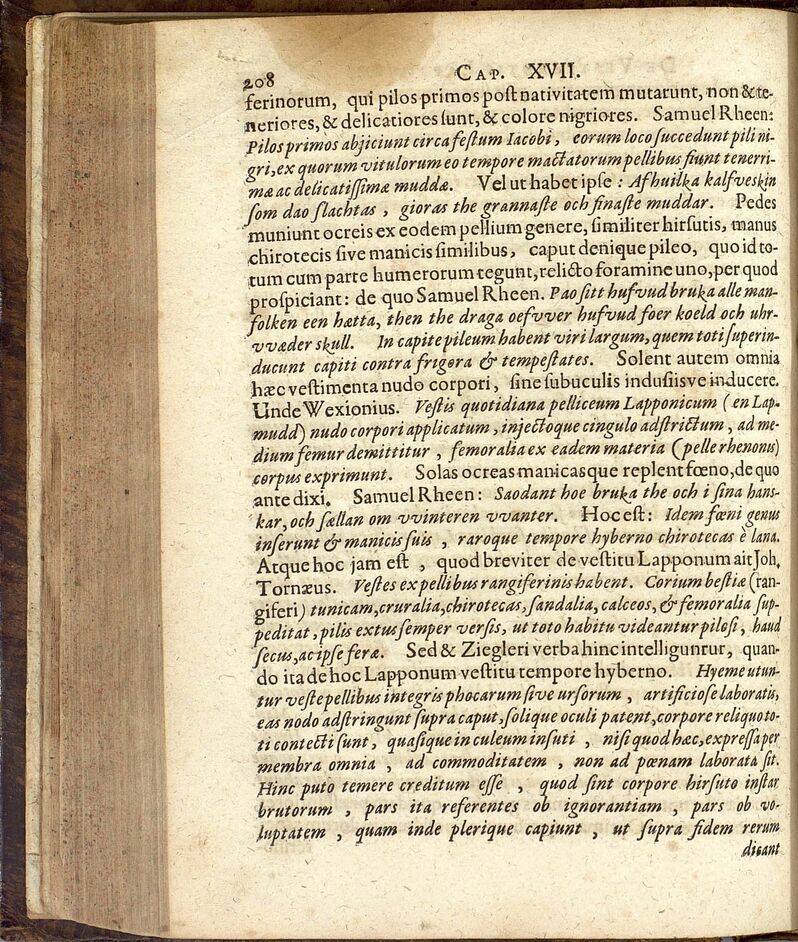 208 CAP. XVII.
ferinorum, qui pilos primos post nativitatem mutarunt, non & te-
neriores, & delicatiores sunt, & colore nigriores. Samuel Rheen:
Pilos primos abjiciunt circa festum Iacobi, eorum loco succedunt pili ni-
gri, ex quorum vitulorum eo tempore mactatorum pellibus fiunt tenerri-
mæ ac delicatissimæ muddæ. Vel ut habet ipse: Af huilka kalfveskin
som dao slachtas, gioras the grannaste och finaste muddar. Pedes
muniunt ocreis ex eodem pellium genere, similiter hirsutis, manus
chirotecis sive manicis similibus, caput denique pileo, quo id to-
tum cum parte humerorum tegunt, relicto foramine uno, per quod
prospiciant: de quo Samuel Rheen. Pao sitt hufvud bruka alle man-
folken een hætta, then the draga oefvver hufvud foer koeld och uhr-
vvæder skull. In capite pileum habent viri largum, quem toti superin-
ducunt capiti contra frigora & tempestates. Solent autem omnia
hæc vestimenta nudo corpori, sine subuculis indusiisve inducere.
Unde Wexionius. Vestis quotidiana pelliceum Lapponicum (en Lap-
mudd) nudo corpori applicatum, injectoque cingulo adstrictum, ad me-
dium femur demittitur, femoralia ex eadem materia (pelle rhenonis)
corpus exprimunt. Solas ocreas manicasque replent fœno, de quo
ante dixi. Samuel Rheen: Saodant hoe bruka the och i sina hans-
kar, och sællan om vvinteren vvanter. Hoc est: Idem fœni genus
inserunt & manicis suis, raroque tempore hyberno chirotecas è lana.
Atque hoc jam est, quod breviter de vestitu Lapponum ait Joh.
Tornæus. Vestes ex pellibus rangiferinis habent. Corium bestiæ (ran-
giferi) tunicam, cruralia, chirotecas, sandalia, calceos, & femoralia sup-
peditat, pilis extus semper versis, ut toto habitu videantur pilosi, haud
secus, ac ipse feræ. Sed & Ziegleri verba hinc intelliguntur, quan-
do ita de hoc Lapponum vestitu tempore hyberno. Hyeme utun-
tur veste pellibus integris phocarum sive ursorum, artificiose laboratis,
eas nodo adstringunt supra caput, solique oculi patent, corpore reliquo to-
ti contecti sunt, quasique in culeum insuti, nisi quod hæc, expressa per
membra omnia, ad commoditatem, non ad pœnam laborata sit.
Hinc puto temere creditum esse, quod sint corpore hirsuto instar
brutorum, pars ita referentes ob ignorantiam, pars ob vo-
luptatem, quam inde plerique capiunt, ut supra fidem rerum
dicant